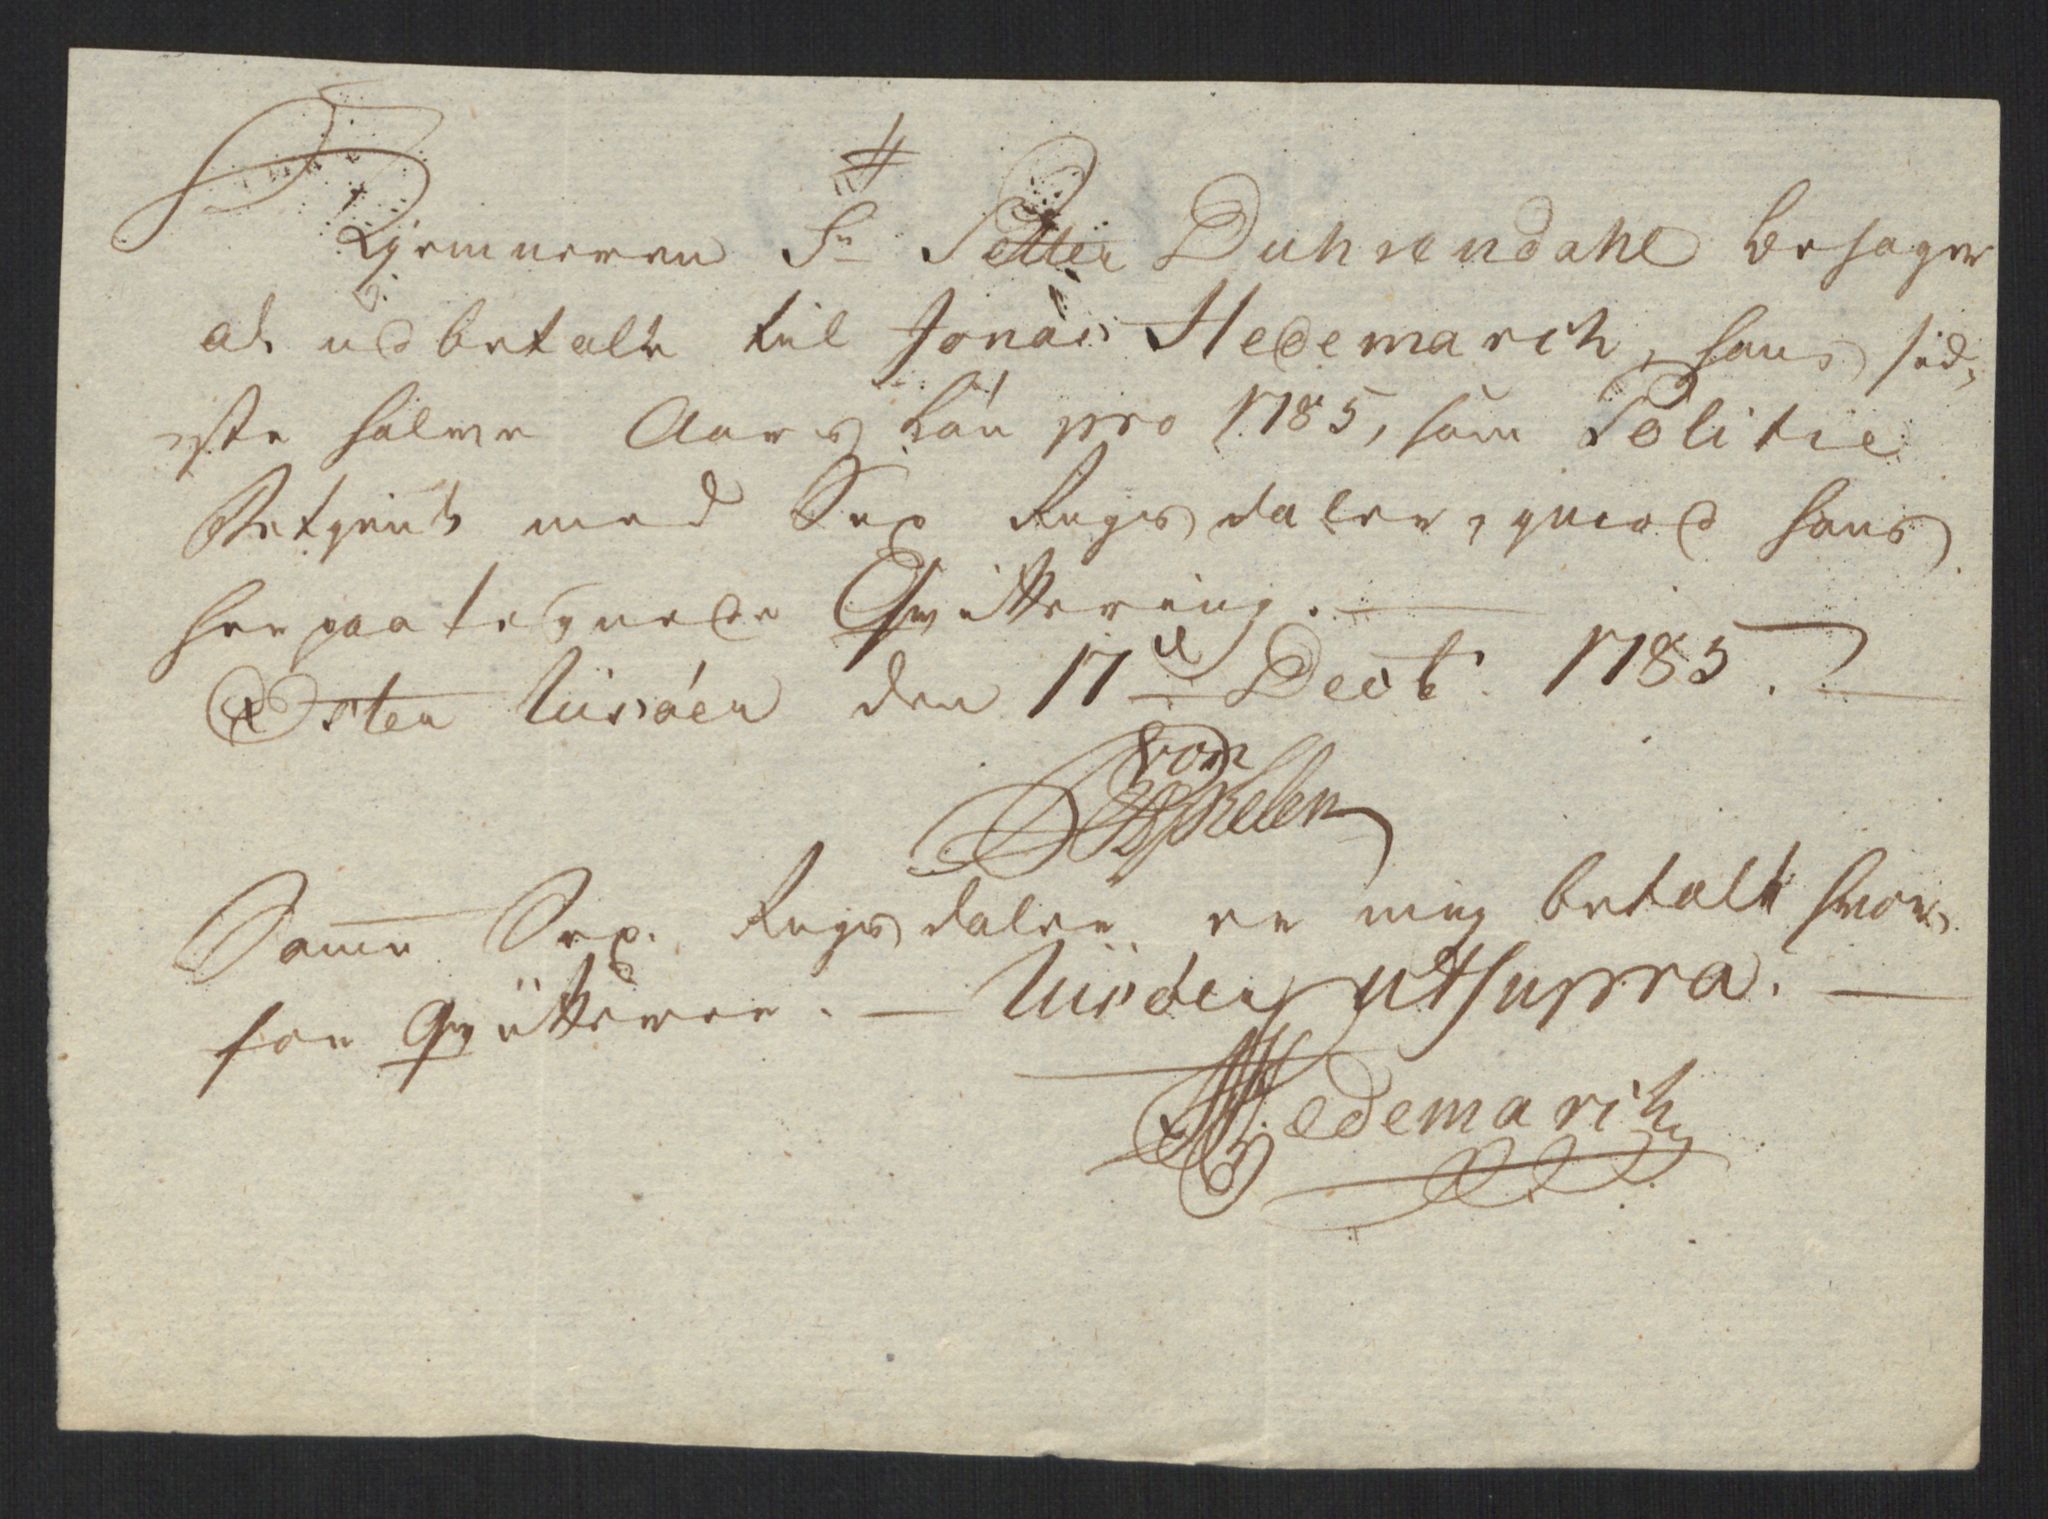 Kjemneren Sr Petter Duhrendahl behager
at udbetale til Jonas Hedemarch, hans sid-
ste halve Aars Lön pro 1785, som Politie
Betjent med Sex Rigsdaler, imod hans
her paategnede Qvittering.
Öster Riisöer den 17de Decbr. 1785.
von
Samme Sex Rigsdaler er mig betalt hvor-
for qvitterer. — Riisöer ut supra.
Hedemarch